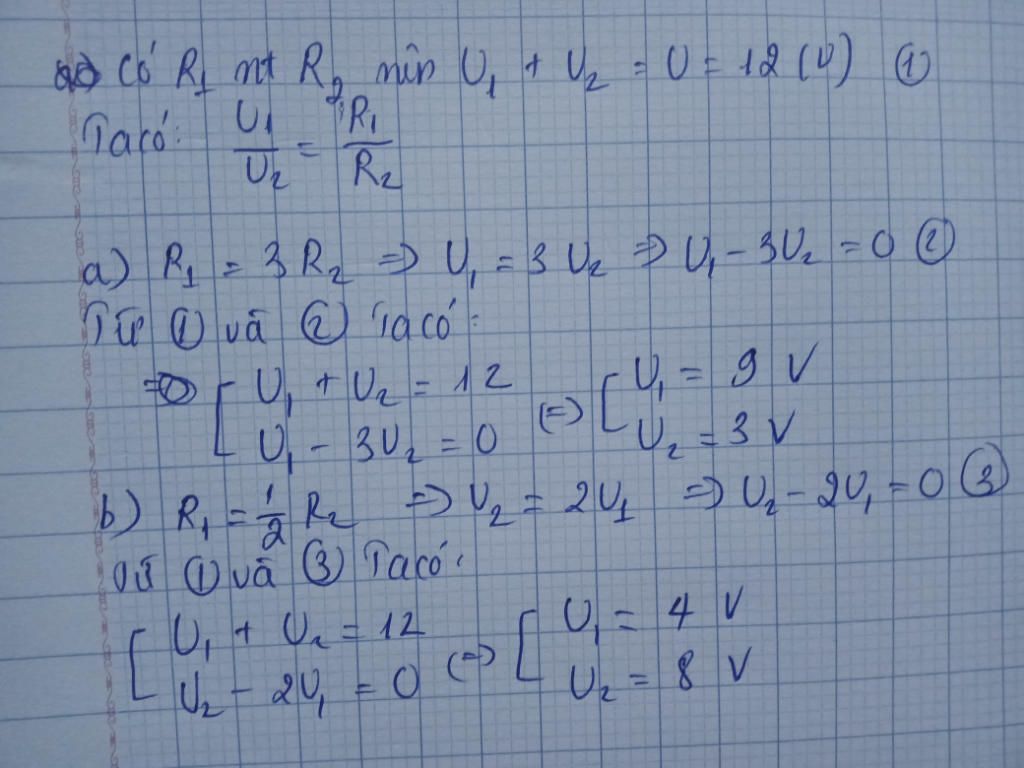 Có R₁ nt R₂ nên U₁ + U₂ = U = 12 (V) ①
Ta có: U₁/U₂ = R₁/R₂
a) R₁ = 3R₂ => U₁ = 3U₂ => U₁ - 3U₂ = 0 ②
Từ ① và ② Ta có:
=> [ U₁ + U₂ = 12 (=> [ U₁ = 9 V
U₁ - 3U₂ = 0 U₂ = 3 V
b) R₁ = 1/2 R₂ => U₂ = 2U₁ => U₂ - 2U₁ = 0 ③
Từ ① và ③ Ta có:
[ U₁ + U₂ = 12 (=> [ U₁ = 4 V
U₂ - 2U₁ = 0 U₂ = 8 V